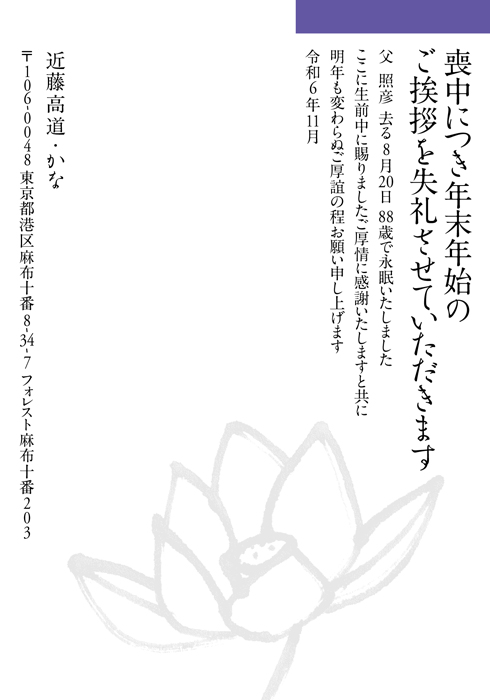 喪中につき年末年始の
ご挨拶を失礼させていただきます
父 照彦 去る8月20日 88歳で永眠いたしました
ここに生前中に賜りましたご厚情に感謝いたしますと共に
明年も変わらぬご厚誼の程お願い申し上げます
令和6年11月
近藤高道・かな
〒106-0048 東京都港区麻布十番8-34-7 フォレスト麻布十番203